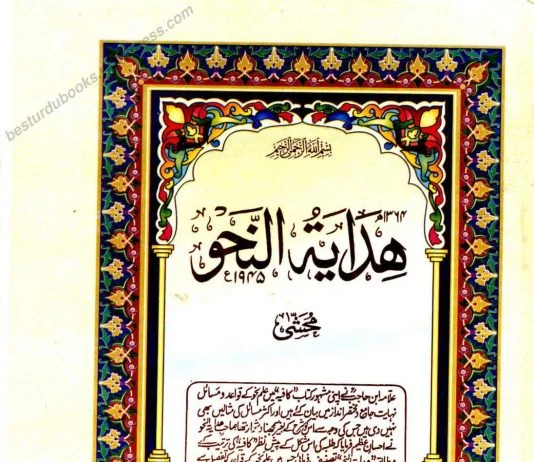 besturdubooks.wordpress.com
بسم الله الرحمن الرحيم
۱۳۶۴ھ
هداية النحو
۱۹۴۵ء
محشی
علامہ ابن حاجبؒ نے اپنی مشہور کتاب "کافیہ" میں علم نحو کے قواعد و مسائل
نہایت جامع و مختصر انداز میں بیان کئے ہیں اور اکثر مسائل کی مثالیں بھی
نہیں دی ہیں جس کی وجہ سے اس کی شرح کے بغیر سمجھنا دشوار تھا صاحب هداية النحو
نے احسان عظیم فرمایا کہ طلبہ کی اس مشکل کے پیش نظر "کافیہ" کی ترتیب پر